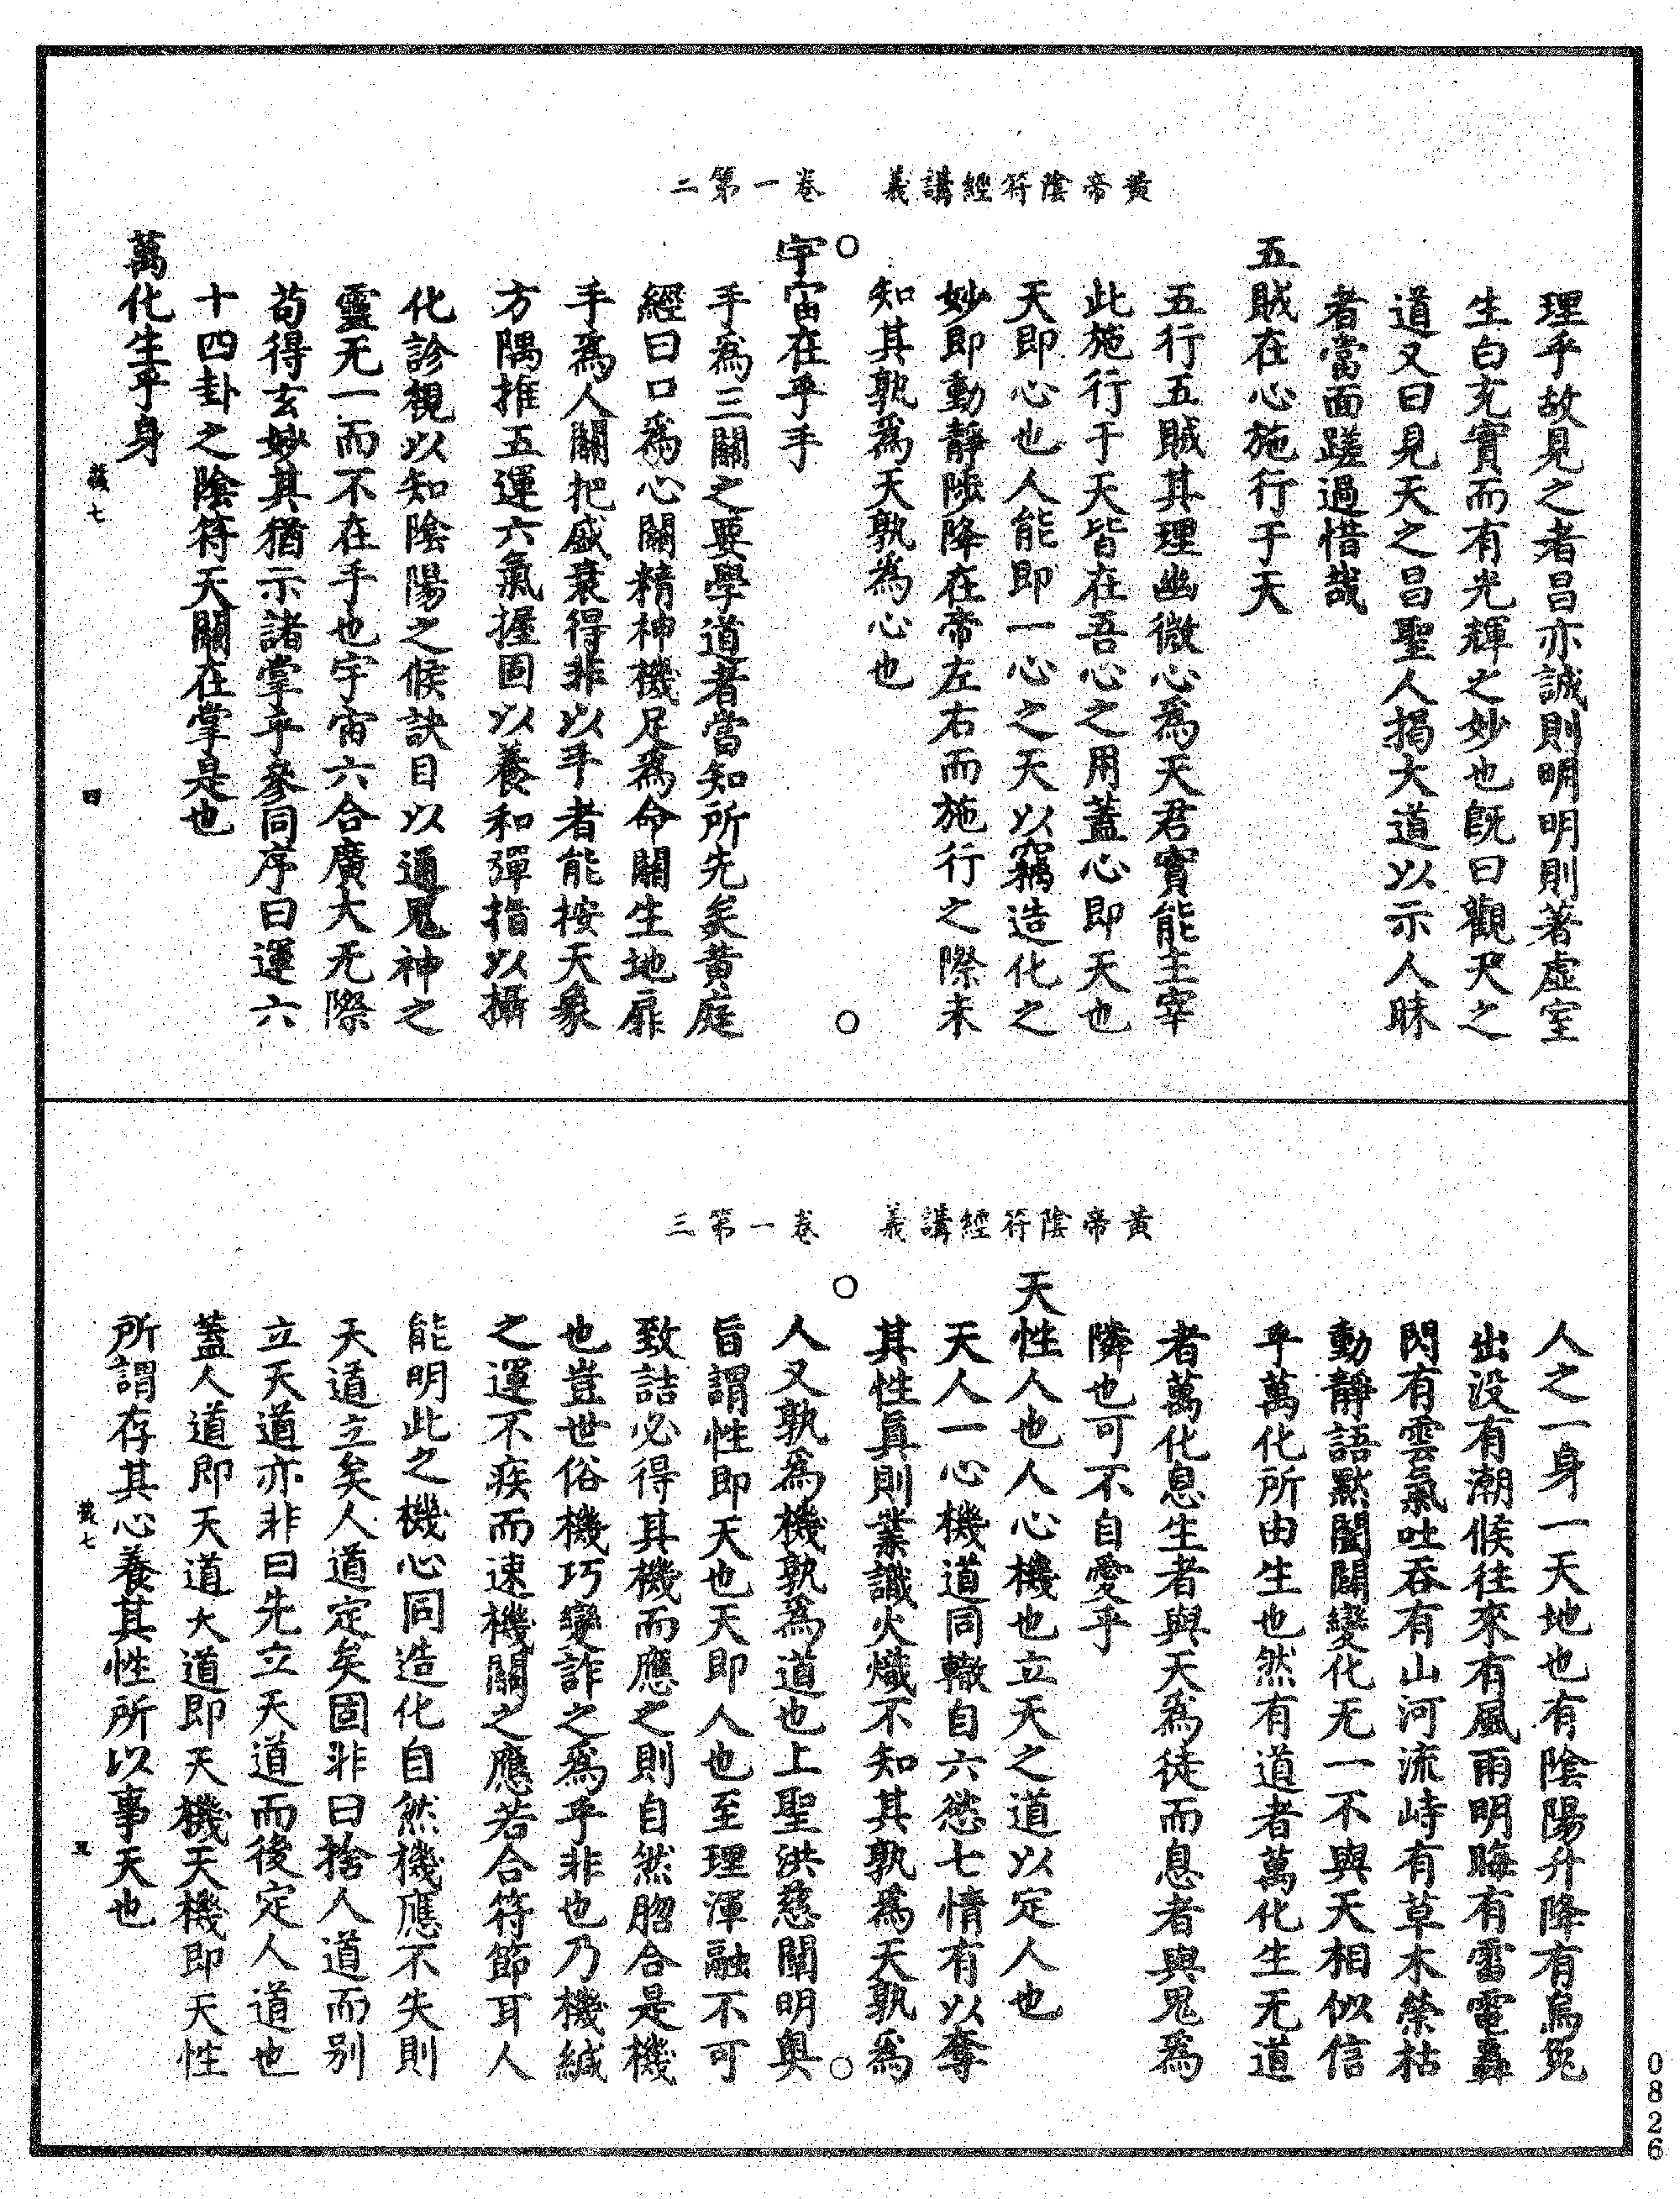 黃帝陰符經講義　卷一第二
理乎故見之者昌亦誠則明明則著虛室
生白充實而有光輝之妙也旣曰觀天之
道又曰見天之昌聖人揭大道以示人昧
者當面蹉過惜哉
五賊在心施行于天
五行五賊其理幽微心爲天君實能主宰
此施行于天皆在吾心之用蓋心即天也
天即心也人能即一心之天以竊造化之
妙即動靜陟降在帝左右而施行之際未
知其孰爲天孰爲心也
宇宙在乎手
手爲三關之要學道者當知所先矣黃庭
經曰口爲心關精神機足爲命關生地扉
手爲人關把盛衰得非以手者能按天象
方隅推五運六氣握固以養和彈指以攝
化診視以知陰陽之候訣目以通鬼神之
靈无一而不在手也宇宙六合廣大无際
苟得玄妙其猶示諸掌乎參同序曰運六
十四卦之陰符天關在掌是也
萬化生乎身
四
黃帝陰符經講義　卷一第三
人之一身一天地也有陰陽升降有烏兔
出没有潮候往來有風雨明晦有雷電轟
閃有雲氣吐吞有山河流峙有草木榮枯
動靜語默闔闢變化无一不與天相似信
乎萬化所由生也然有道者萬化生无道
者萬化息生者與天爲徒而息者與鬼爲
隣也可不自愛乎
天性人也人心機也立天之道以定人也
天人一心機道同轍自六慾七情有以奪
其性眞則業識火熾不知其孰爲天孰爲
人又孰爲機孰爲道也上聖洪慈闡明奥
旨謂性即天也天即人也至理渾融不可
致詰必得其機而應之則自然脗合是機
也豈世俗機巧變詐之爲乎非也乃機緘
之運不疾而速機關之應若合符節耳人
能明此之機心同造化自然機應不失則
天道立矣人道定矣固非曰捨人道而別
立天道亦非曰先立天道而後定人道也
蓋人道即天道大道即天機天機即天性
所謂存其心養其性所以事天也
五
0826